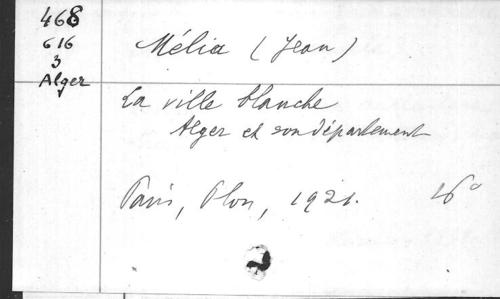 468
616
3
Alger
Mélia (Jean)
La ville blanche
Alger et son département
Paris, Plon, 1921. 16°